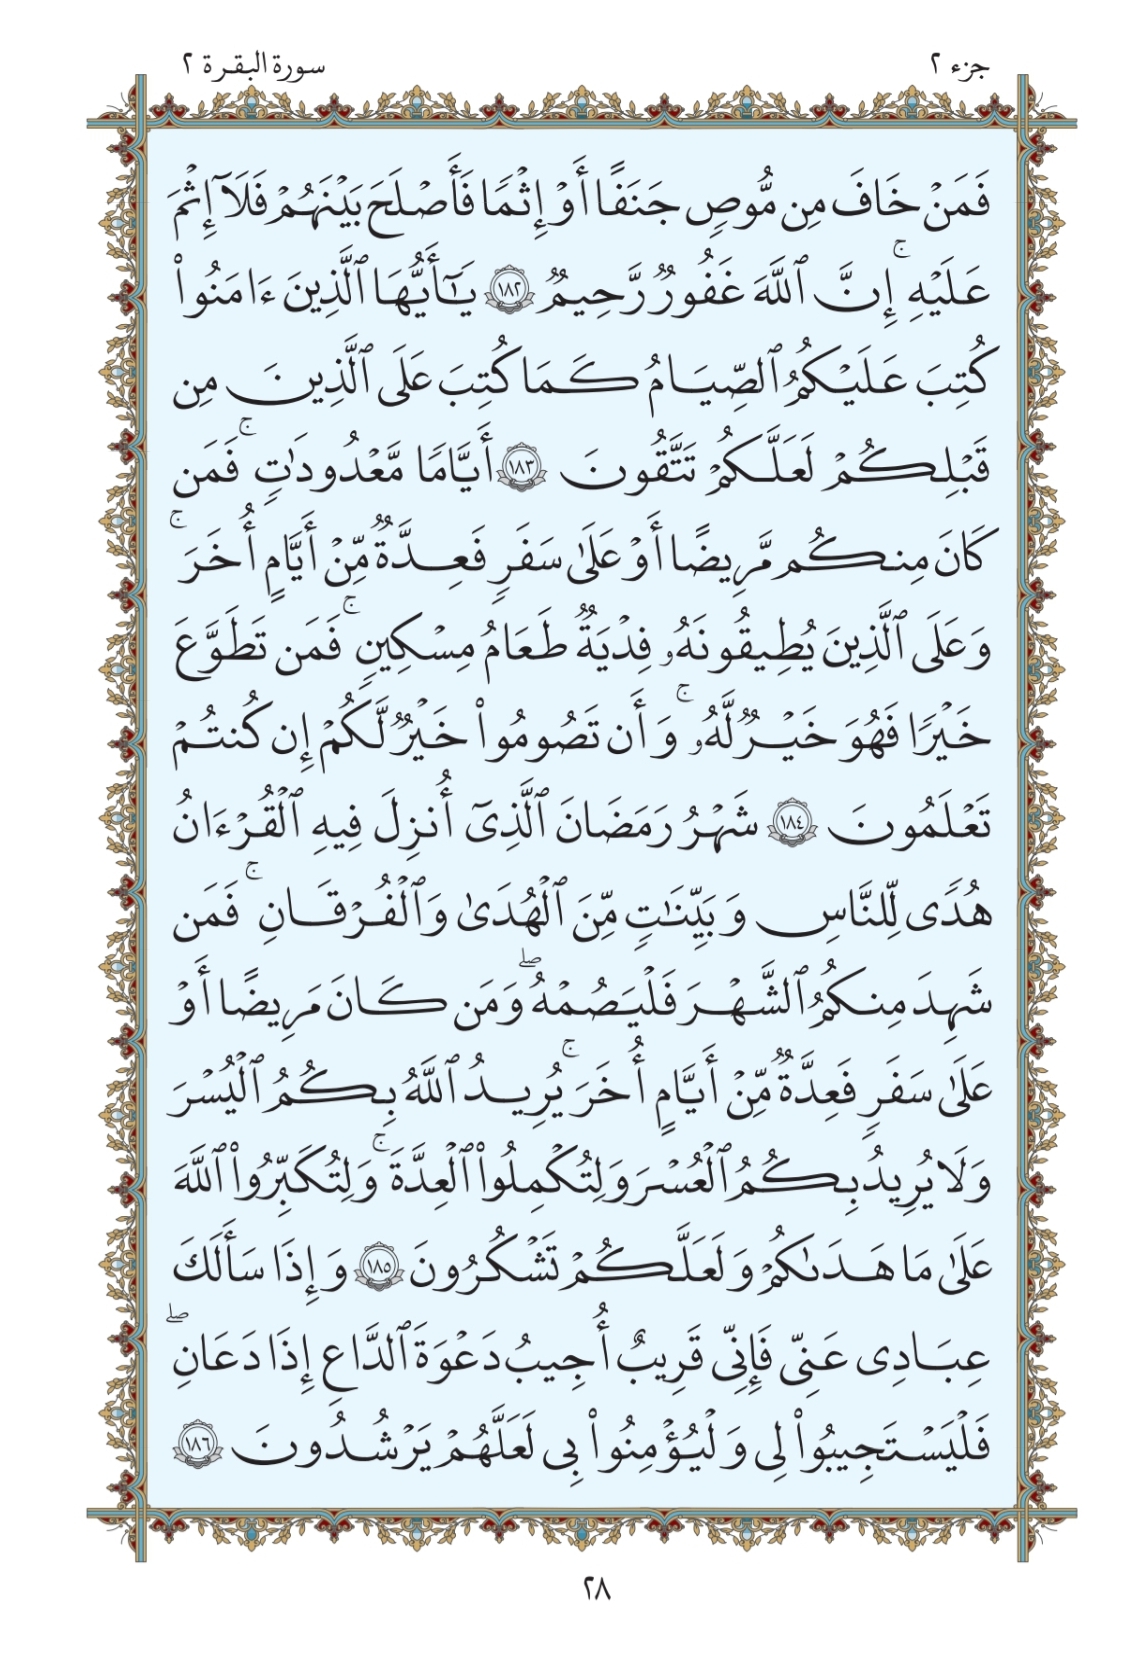 جزء ٢
سورة البقرة ٢
فَمَنْ خَافَ مِن مُّوصٍ جَنَفًا أَوْ إِثْمًا فَأَصْلَحَ بَيْنَهُمْ فَلَآ إِثْمَ
عَلَيْهِ ۚ إِنَّ ٱللَّهَ غَفُورٌ رَّحِيمٌ ١٨٢ يَـٰٓأَيُّهَا ٱلَّذِينَ ءَامَنُوا۟
كُتِبَ عَلَيْكُمُ ٱلصِّيَامُ كَمَا كُتِبَ عَلَى ٱلَّذِينَ مِن
قَبْلِكُمْ لَعَلَّكُمْ تَتَّقُونَ ١٨٣ أَيَّامًا مَّعْدُودَٰتٍ ۚ فَمَن
كَانَ مِنكُم مَّرِيضًا أَوْ عَلَىٰ سَفَرٍ فَعِدَّةٌ مِّنْ أَيَّامٍ أُخَرَ ۚ
وَعَلَى ٱلَّذِينَ يُطِيقُونَهُۥ فِدْيَةٌ طَعَامُ مِسْكِينٍ ۚ فَمَن تَطَوَّعَ
خَيْرًا فَهُوَ خَيْرٌ لَّهُۥ ۚ وَأَن تَصُومُوا۟ خَيْرٌ لَّكُمْ إِن كُنتُمْ
تَعْلَمُونَ ١٨٤ شَهْرُ رَمَضَانَ ٱلَّذِىٓ أُنزِلَ فِيهِ ٱلْقُرْءَانُ
هُدًى لِّلنَّاسِ وَبَيِّنَـٰتٍ مِّنَ ٱلْهُدَىٰ وَٱلْفُرْقَانِ ۚ فَمَن
شَهِدَ مِنكُمُ ٱلشَّهْرَ فَلْيَصُمْهُ ۖ وَمَن كَانَ مَرِيضًا أَوْ
عَلَىٰ سَفَرٍ فَعِدَّةٌ مِّنْ أَيَّامٍ أُخَرَ ۚ يُرِيدُ ٱللَّهُ بِكُمُ ٱلْيُسْرَ
وَلَا يُرِيدُ بِكُمُ ٱلْعُسْرَ وَلِتُكْمِلُوا۟ ٱلْعِدَّةَ ۚ وَلِتُكَبِّرُوا۟ ٱللَّهَ
عَلَىٰ مَا هَدَىٰكُمْ وَلَعَلَّكُمْ تَشْكُرُونَ ١٨٥ وَإِذَا سَأَلَكَ
عِبَادِى عَنِّى فَإِنِّى قَرِيبٌ أُجِيبُ دَعْوَةَ ٱلدَّاعِ إِذَا دَعَانِ ۖ
فَلْيَسْتَجِيبُوا۟ لِى وَلْيُؤْمِنُوا۟ بِى لَعَلَّهُمْ يَرْشُدُونَ ١٨٦
٢٨